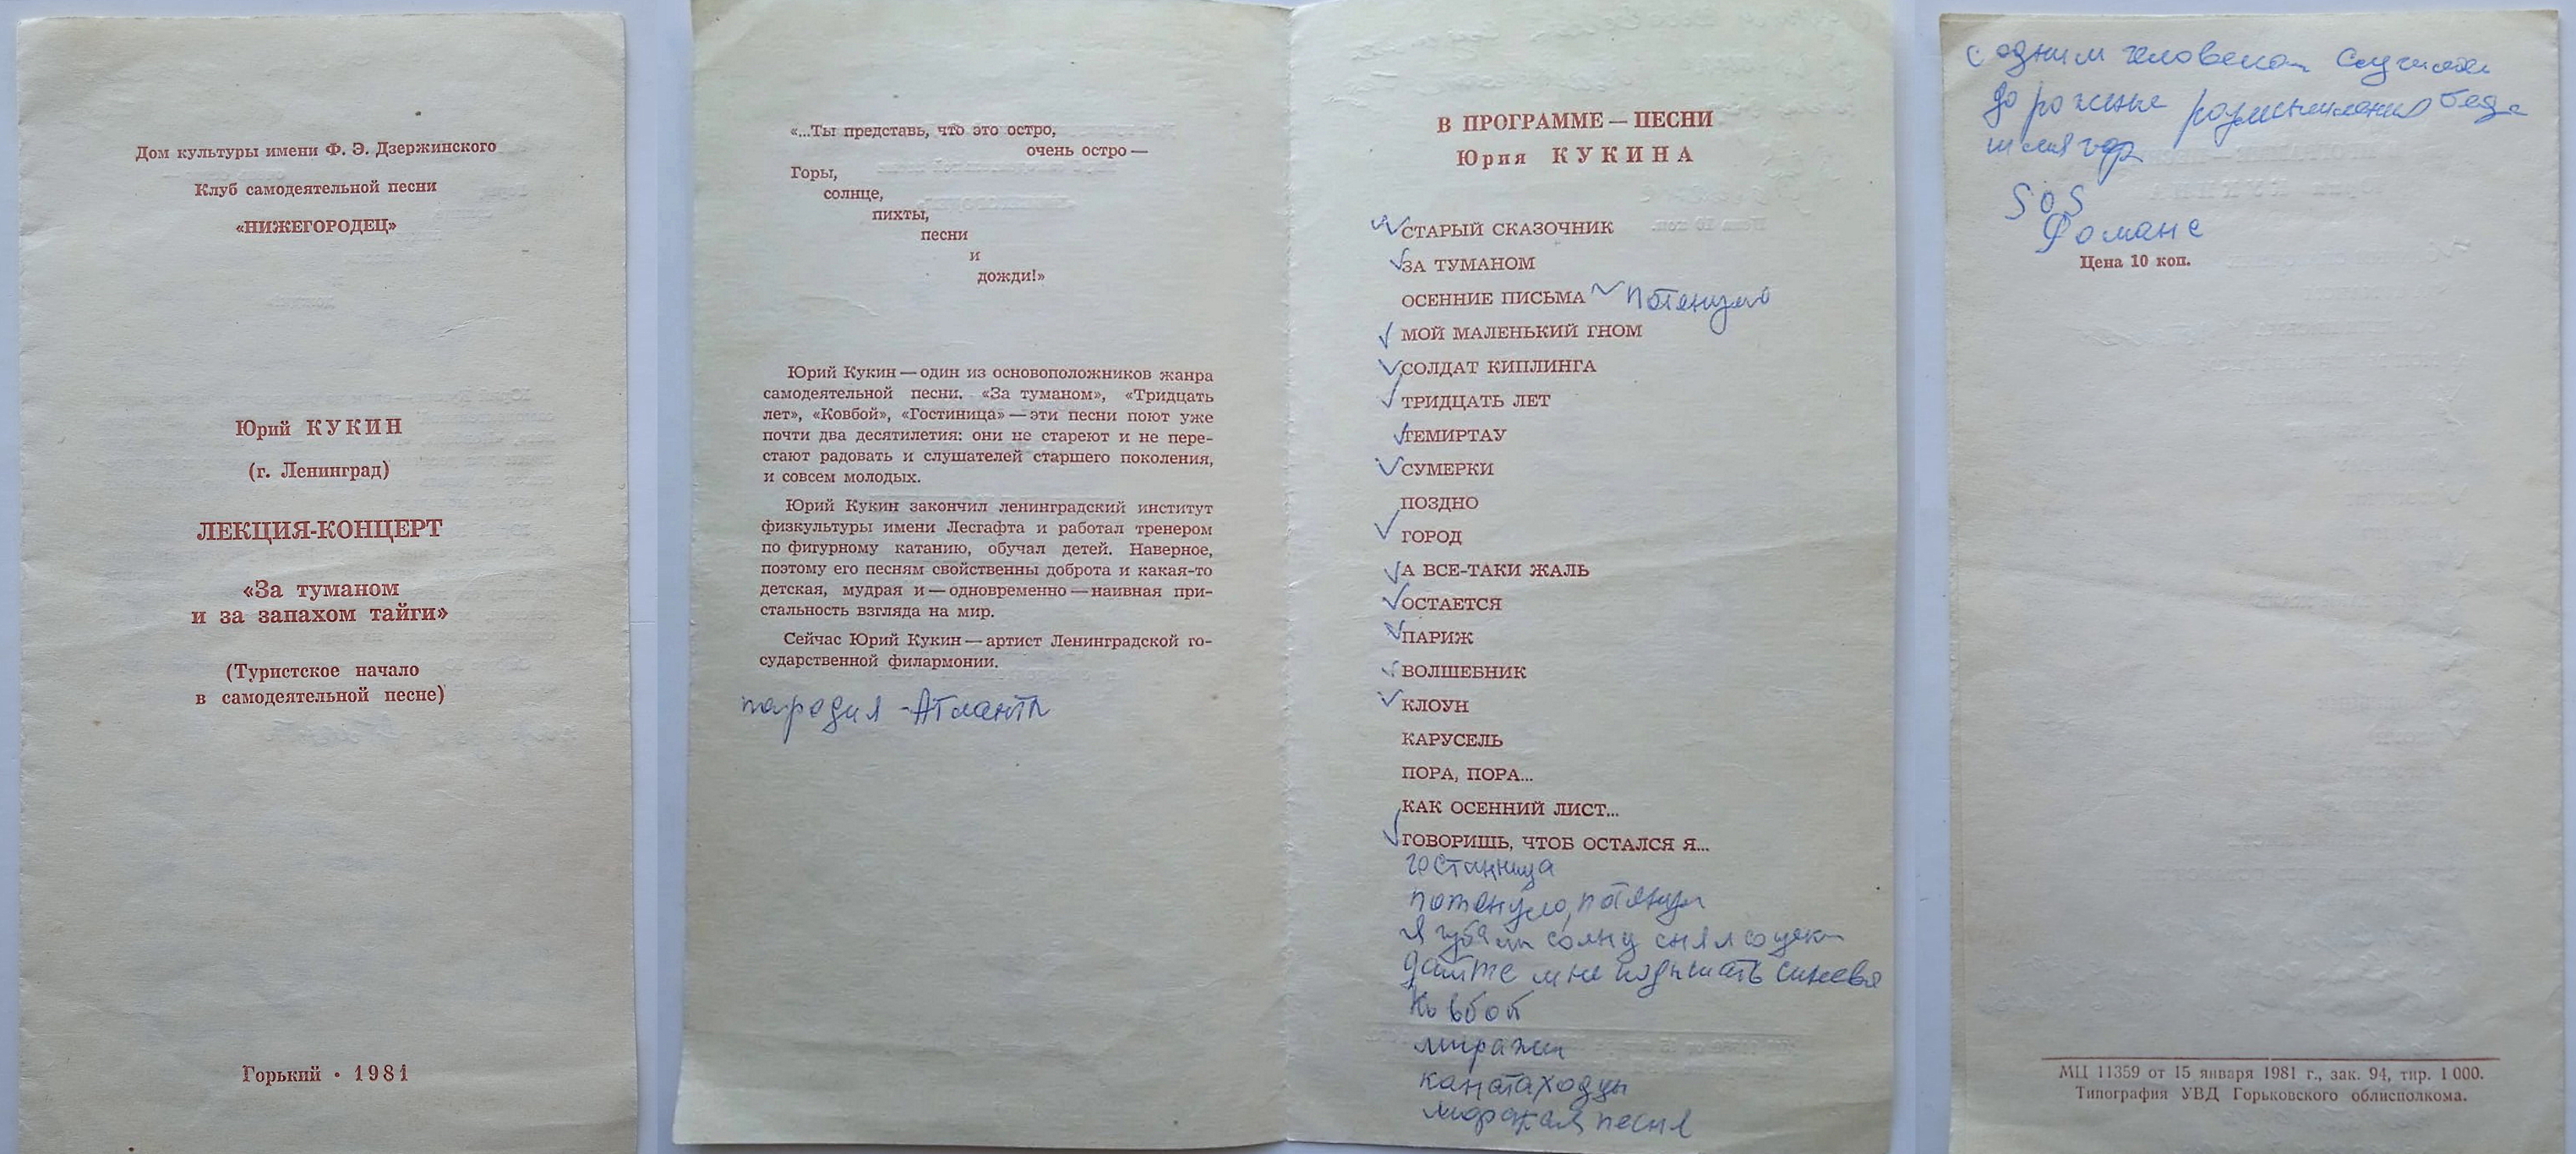 Дом культуры имени Ф. Э. Дзержинского
Клуб самодеятельной песни
«НИЖЕГОРОДЕЦ»
Юрий КУКИН
(г. Ленинград)
ЛЕКЦИЯ-КОНЦЕРТ
«За туманом
и за запахом тайги»
(Туристское начало
в самодеятельной песне)
Горький • 1981
«...Ты представь, что это остро,
очень остро —
Горы,
солнце,
пихты,
песни
и
дожди!»
Юрий Кукин — один из основоположников жанра
самодеятельной песни. «За туманом», «Тридцать
лет», «Ковбой», «Гостиница» — эти песни поют уже
почти два десятилетия: они не стареют и не пере-
стают радовать и слушателей старшего поколения,
и совсем молодых.
Юрий Кукин закончил ленинградский институт
физкультуры имени Лесгафта и работал тренером
по фигурному катанию, обучал детей. Наверное,
поэтому его песням свойственны доброта и какая-то
детская, мудрая и — одновременно — наивная при-
стальность взгляда на мир.
Сейчас Юрий Кукин — артист Ленинградской го-
сударственной филармонии.
пародия - Атланты
В ПРОГРАММЕ — ПЕСНИ
Юрия КУКИНА
СТАРЫЙ СКАЗОЧНИК
ЗА ТУМАНОМ
ОСЕННИЕ ПИСЬМА потянуло
МОЙ МАЛЕНЬКИЙ ГНОМ
СОЛДАТ КИПЛИНГА
ТРИДЦАТЬ ЛЕТ
ТЕМИРТАУ
СУМЕРКИ
ПОЗДНО
ГОРОД
А ВСЕ-ТАКИ ЖАЛЬ
ОСТАЕТСЯ
ПАРИЖ
ВОЛШЕБНИК
КЛОУН
КАРУСЕЛЬ
ПОРА, ПОРА...
КАК ОСЕННИЙ ЛИСТ...
ГОВОРИШЬ, ЧТОБ ОСТАЛСЯ Я...
гостиница
потянуло,
Я
дайте мне
Ковбой
миражи
канатаходцы
песня
с одним человеком случилась
беда
SOS
Романс
Цена 10 коп.
МЦ 11359 от 15 января 1981 г., зак. 94, тир. 1 000.
Типография УВД Горьковского облисполкома.